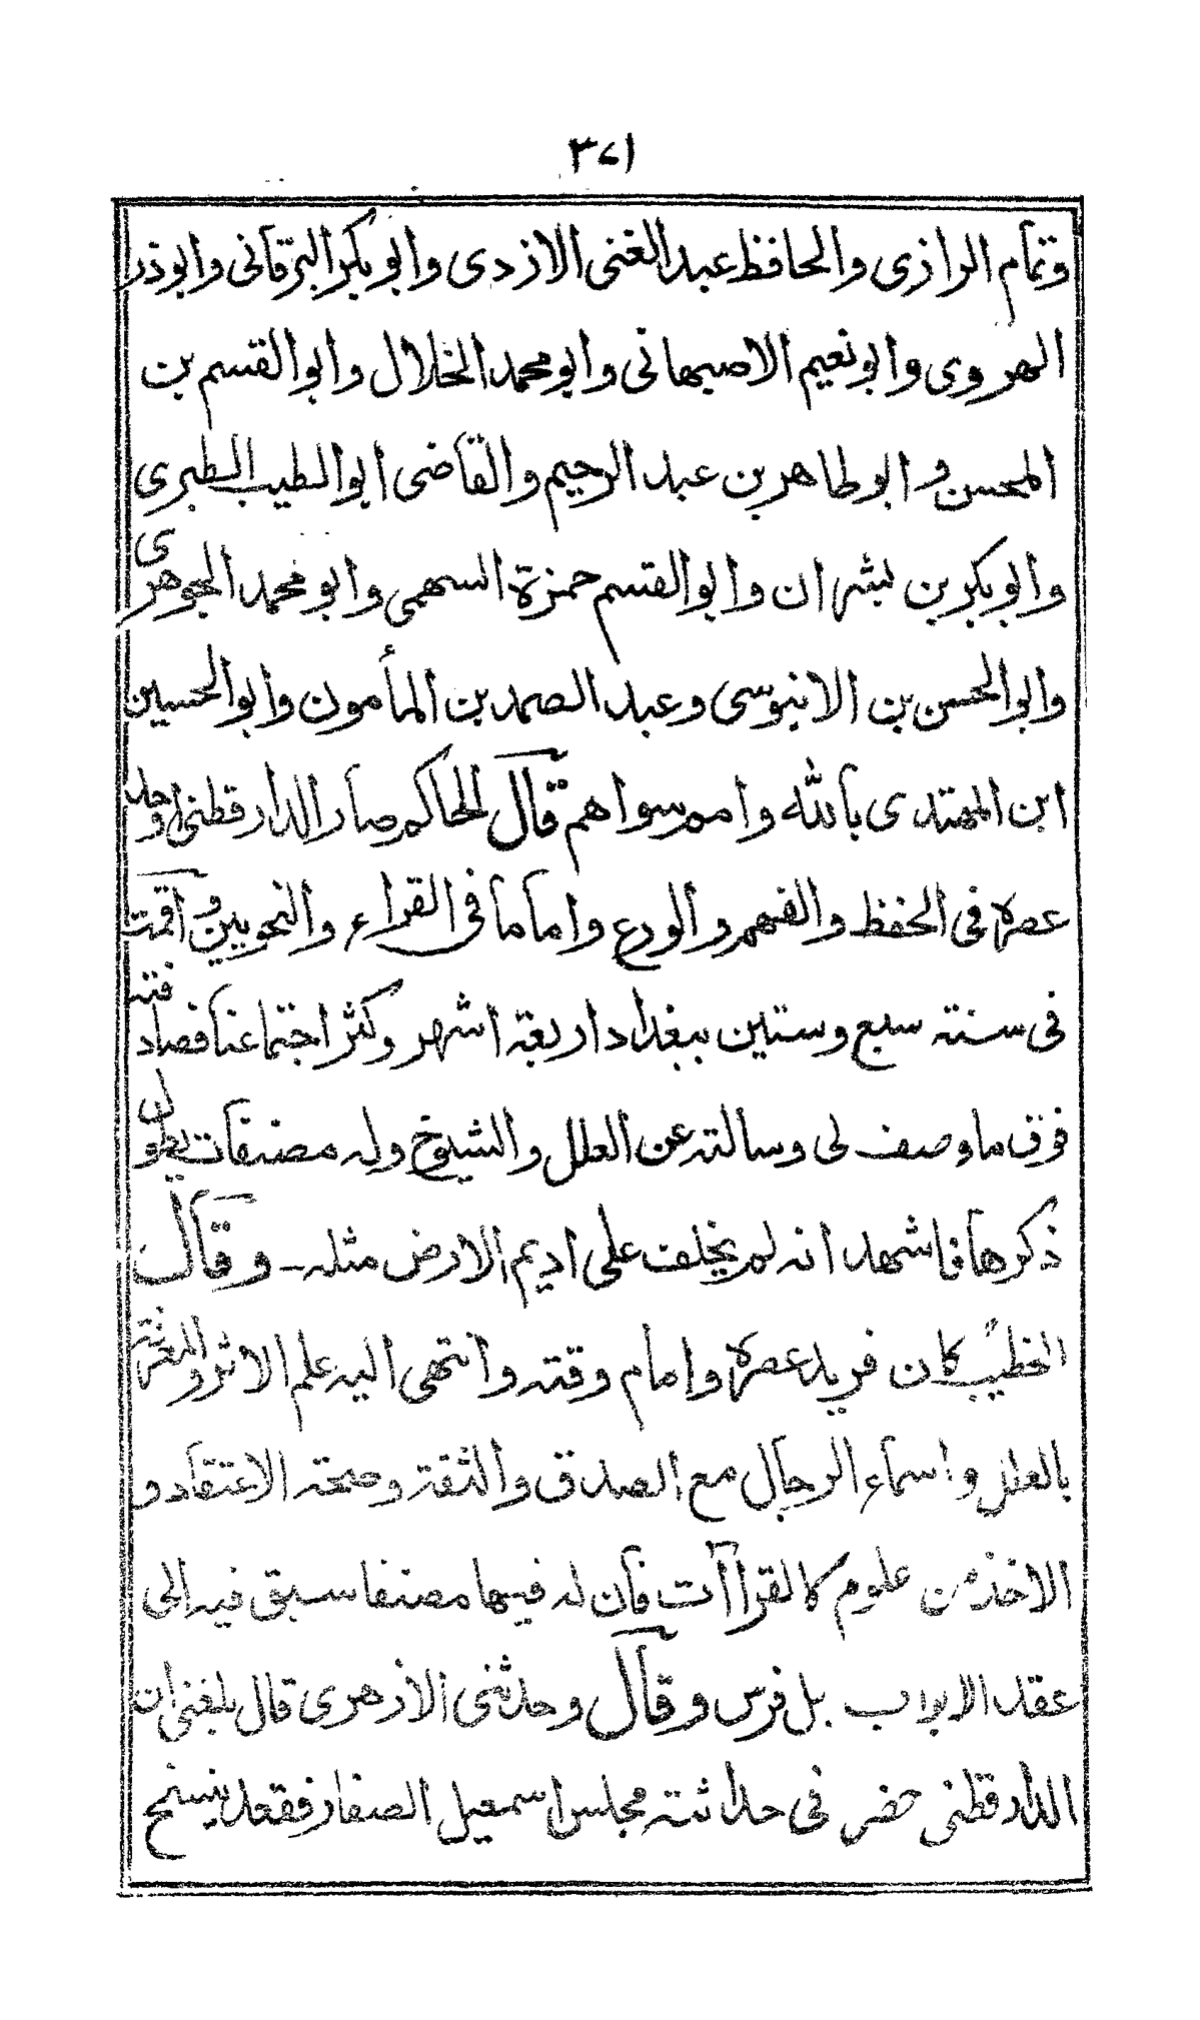 ٣٧١
وتمام الرازى والحافظ عبد الغنى الازدى وابو بكر البرقانى وابوذر
الهروى وابو نعيم الاصبهانى وابو محمد الخلال وابو القسم بن
المحسن وابو طاهر بن عبد الرحيم والقاضى ابو الطيب الطبرى
وابو بكر بن بشران وابو القسم حمزة السهمى وابو محمد الجوهرى
وابو الحسن بن الابنوسى وعبد الصمد بن المأمون وابو الحسين
ابن المهتدى بالله وامم سواهم قال الحاكم صار الدارقطنى اوحد
عصره فى الحفظ والفهم والورع واماما فى القراء والنحويين واقمت
فى سنة سبع وستين ببغداد اربعة اشهر وكثر اجتماعنا فصادفته
فوق ما وصف لى وسالته عن العلل والشيوخ وله مصنفات يطول
ذكرها فاشهد انه لم يخلف على اديم الارض مثله - وقال
الخطيب كان فريد عصره وامام وقته وانتهى اليه علم الاثر والمعرفة
بالعلل واسماء الرجال مع الصدق والثقة وصحة الاعتقاد و
الاخذ من علوم كالقراآت فان له فيها مصنفا سبق فيه الى
عقد الابواب بل فرس وقال وحدثنى الازهرى قال بلغنى ان
الدارقطنى حضر فى حداثته مجلس اسمعيل الصفار فقعد ينسخ